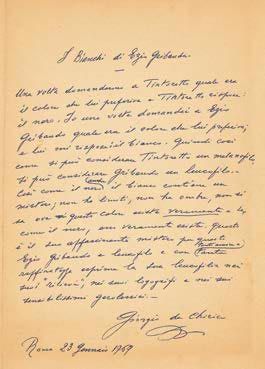 I Bianchi di Ezio Gribaudo
Una volta domandarono a Tintoretto quale era
il colore che lui preferiva e Tintoretto rispose:
il nero. Io una volta domandai a Ezio
Gribaudo quale era il colore che lui preferiva;
e lui mi rispose: il bianco. Quindi così
come si può considerare Tintoretto un melanofilo,
si può considerare Gribaudo un leucofilo.
Così come il nero il bianco contiene un
mistero; non ha limiti, non ha ombre, non si
sa ove questo colore esista veramente e
come il nero, sia veramente esista. Questo
è il suo affascinante mistero per questo
Ezio Gribaudo è leucofilo e con tanta
raffinatezza esprime la sua leucofilia nei
suoi "rilievi", nei suoi logogrifi e nei suoi
sensibilissimi
Giorgio de Chirico
Roma 23 Gennaio 1969